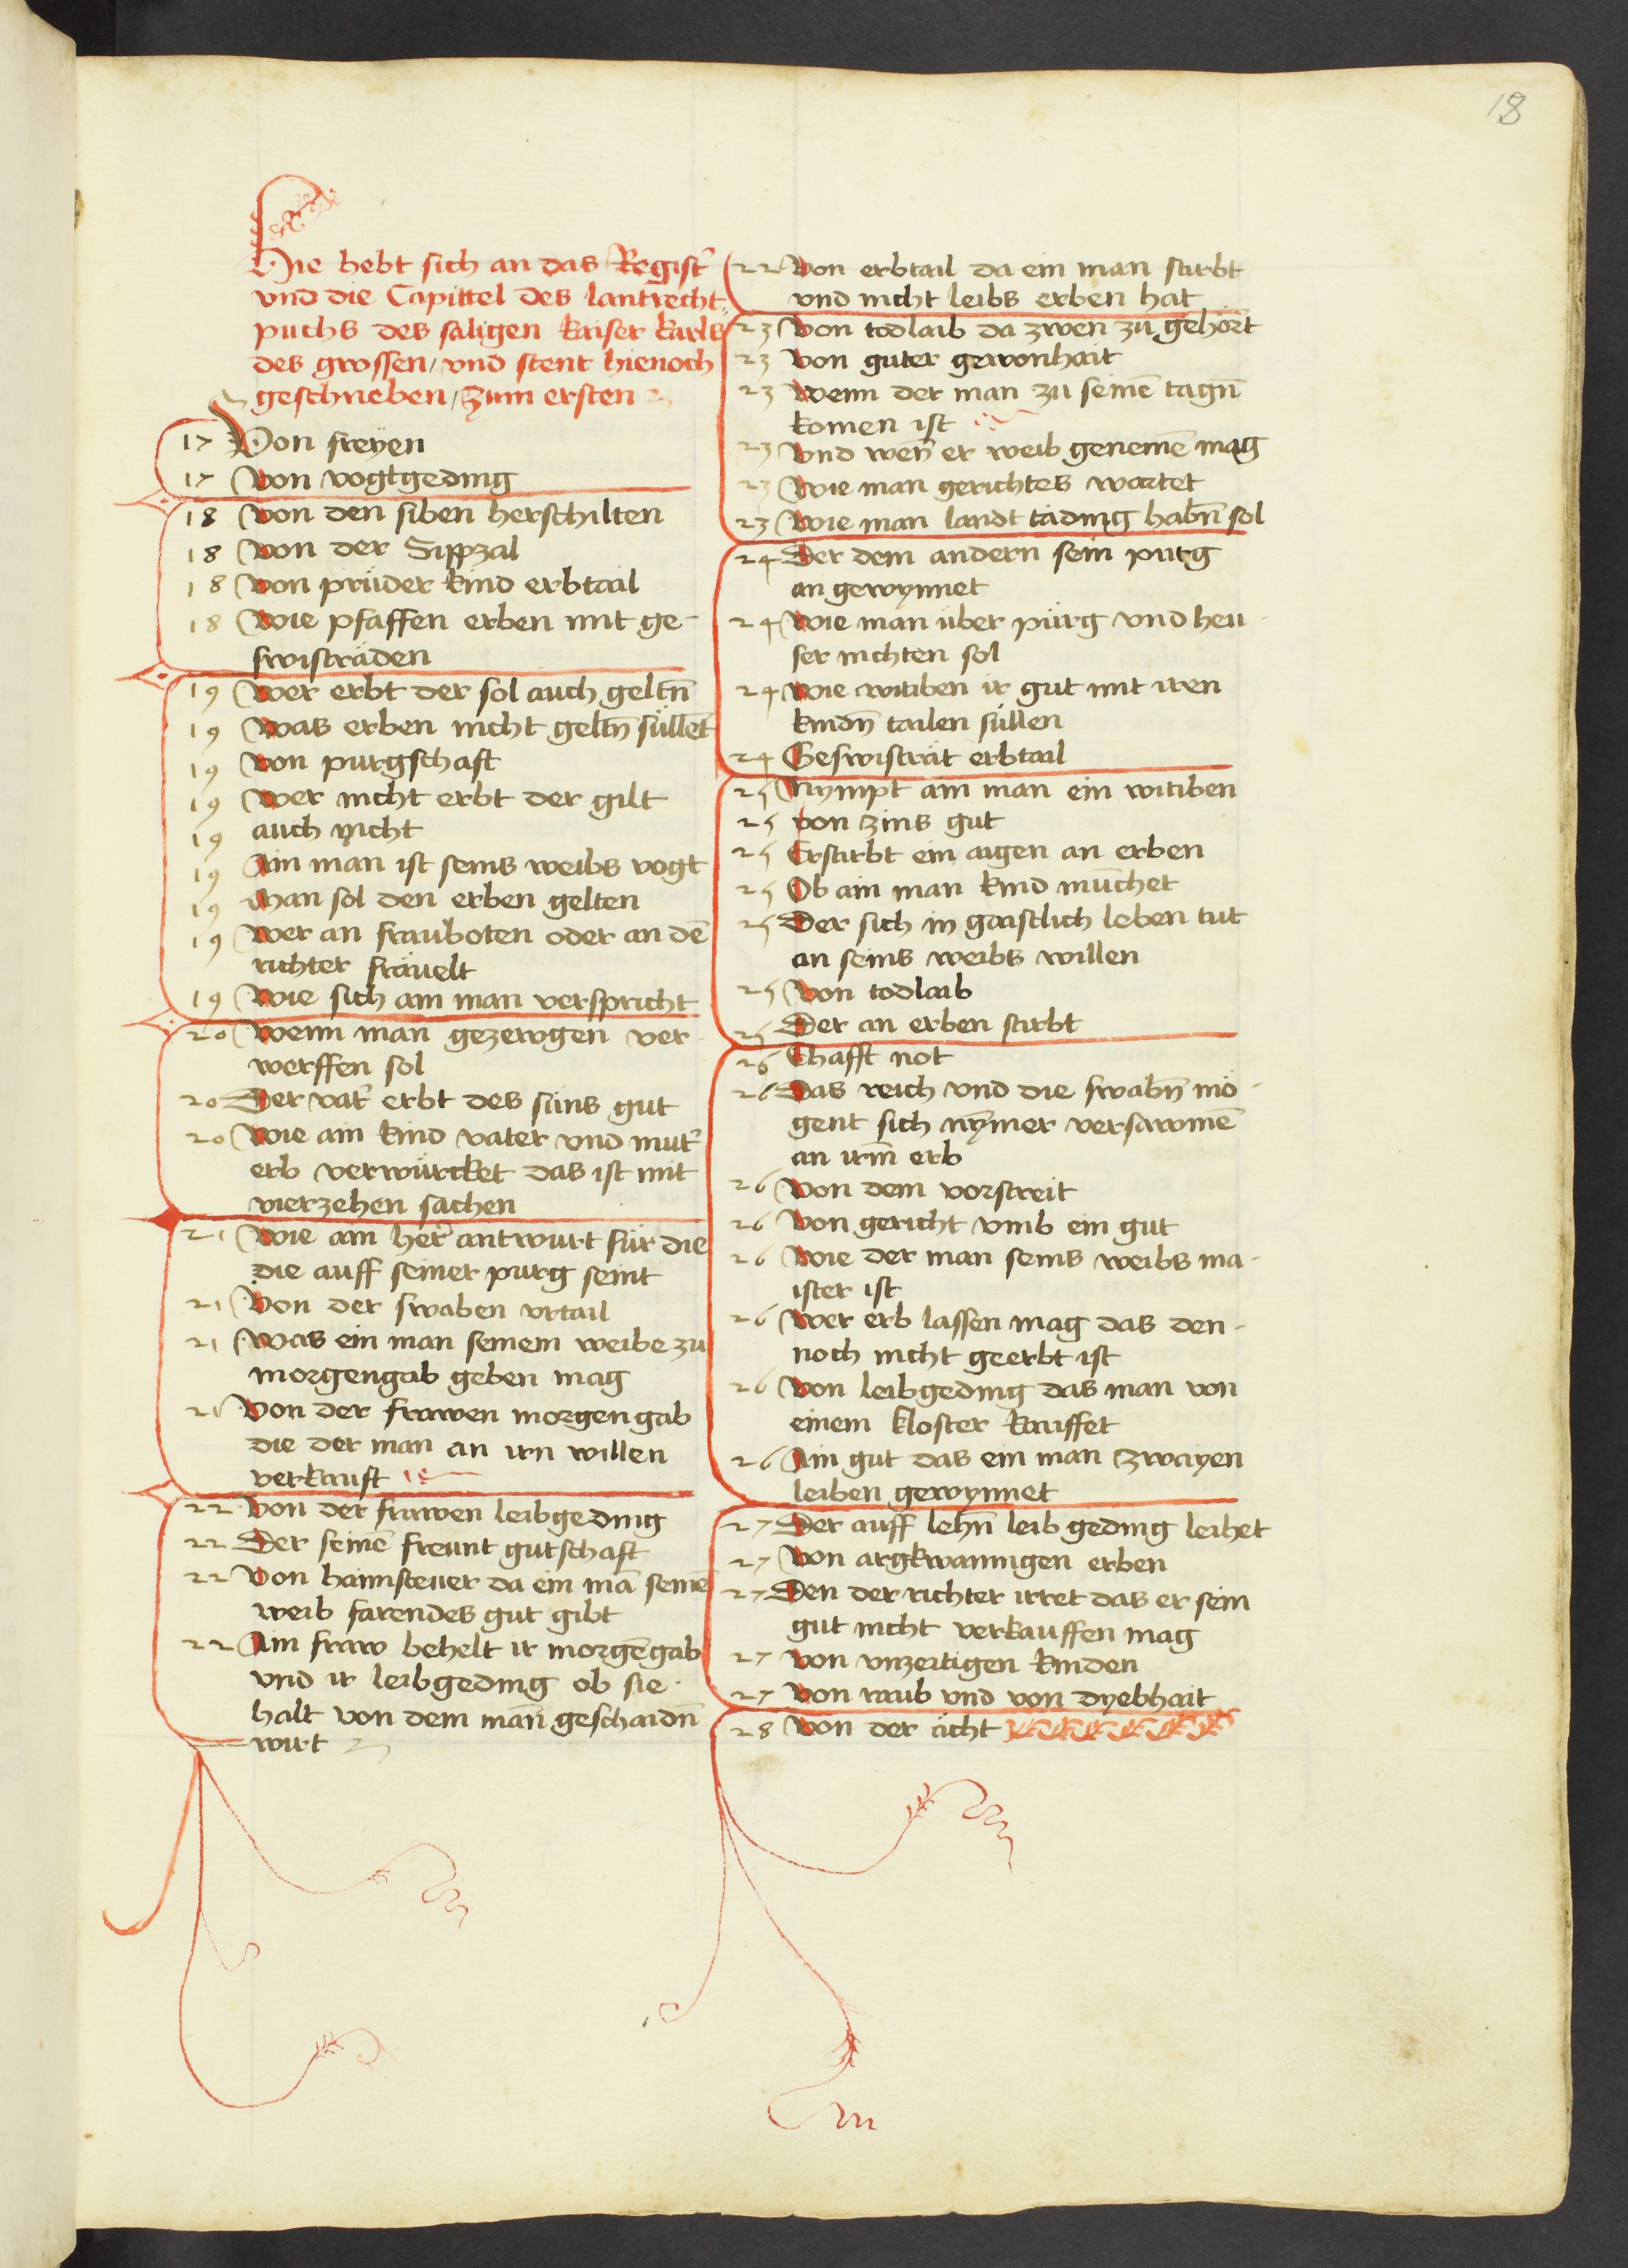 18
Hie hebt sich an das Regist̉
vnd die Capittel des lantrecht
puchs des saligen kaiser karls
des grossen / vnd stent hienoch
geschrieben / zum ersten
17 Von freyen
17 Von vogtgeding
18 Von den siben herschilten
18 Von der Sippzal
18 Von prüder kind erbtail
18 Wie pfaffen erben mit ge-
swisträden
19 Wer erbt der sol auch geltn̄
19 Was erben nicht geltn̄ süllet
19 Von purgschaft
19 Wer nicht erbt der gilt
19 auch nicht
19 Ain man ist seins weibs vogt
19 Man sol den erben gelten
19 Wer an frauboten oder an dē
richter fräuelt
19 Wie sich ain man verspricht
20 Wenn man gezewgen ver-
werffen sol
20 Der vat̉ erbt des süns gut
20 Wie ain kind vater vnd mut̉
erb verwürcket das ist mit
vierzehen sachen
21 Wie ain her̉ antwurt für die
die auff seiner purg seint
21 Von der swaben vrtail
21 Was ein man seinem weibe zu
morgengab geben mag
21 Von der frawen morgengab
die der man an irn willen
verkauft
22 Von der frawen leibgeding
22 Der seinē freunt gutschaft
22 Von haimsteuer da ein mā seinē
weib farendes gut gibt
22 Ain fraw behelt ir morgēgab
vnd ir leibgeding ob sie
halt von dem man̄ geschaidn̄
wirt
22 Von erbtail da ein man stirbt
vnd nicht leibs erben hat
23 Von todlaib da zwen zu gehört
23 Von guter gewonhait
23 Wenn der man zu seinē tagn̄
komen ist
23 Vnd wen̄ er weib genemē mag
23 Wie man gerichtes wartet
23 Wie man landt täding habn̄ sol
24 Der dem andern sein purg
an gewynnet
24 Wie man über pürg vnd heu-
ser richten sol
24 Wie witiben ir gut mit iren
kindn̄ tailen süllen
24 Geswisträt erbtail
25 Nympt ain man ein witiben
25 Von zins gut
25 Erstirbt ein aigen an erben
25 Ob ain man kind münchet
25 Der sich in gaistlich leben tut
an seins weibs willen
25 Von todlaib
25 Der an erben stirbt
26 Ehafft not
26 Das reich vnd die swabn̄ mö-
gent sich nȳmer versawmē
an irm̄ erb
26 Von dem vorstreit
26 Von gericht vmb ein gut
26 Wie der man seins weibs ma-
ister ist
26 Wer erb lassen mag das den-
noch nicht geerbt ist
26 Von leibgeding das man von
einem kloster kauffet
26 Ain gut das ein man zwayen
leiben gewynnet
27 Der auff lehn̄ leib geding leihet
27 Von argkwanigen erben
27 Den der richter irret das er sein
gut nicht verkauffen mag
27 Von vnzeitigen kinden
27 Von raub vnd von dyebhait
28 Von der ächt